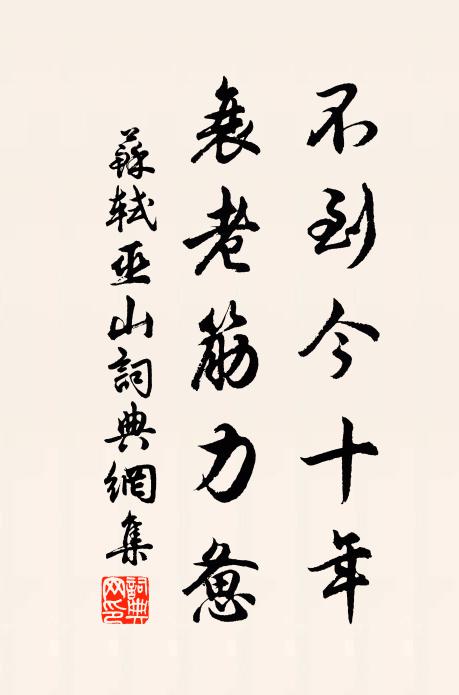 不到今十年
衰老筋力憊
蘇軾巫山詞典網集
詞典網印